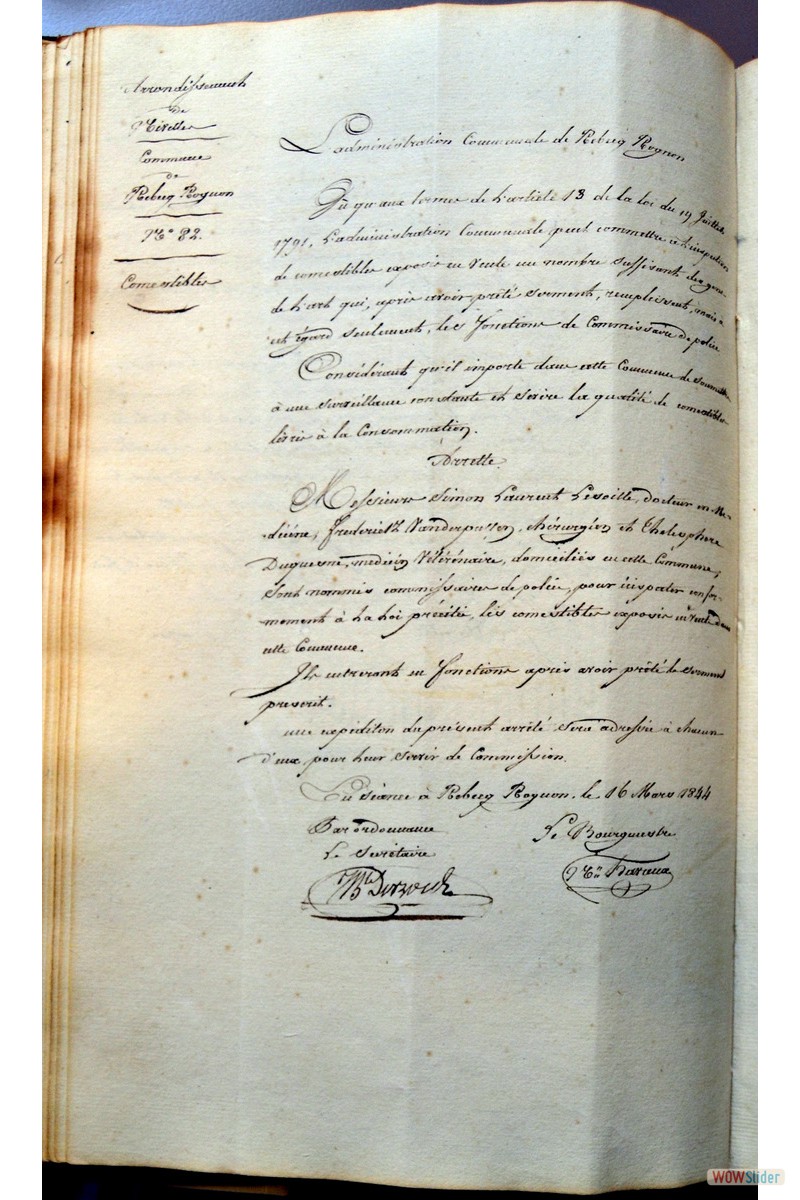 Arrondissement
de
Nivelles
Commune
de
Rebecq Rognon
N° 82.
Comestibles
L'administration Communale de Rebecq Rognon
Vu qu'aux termes de l'article 13 de la loi du 19 Juillet
1791, L'administration Communale peut commettre à l'inspection
de comestibles exposés en vente un nombre suffisant de gens
de l'art qui, après avoir prêté serment, remplissent, mais à
cet égard seulement, les fonctions de Commissaire de police
Considérant qu'il importe dans cette Commune de soumettre
à une surveillance constante et sévère la qualité de comestibles
livrés à la Consommation.
Arrette
Messieurs Simon Laurent Lesoille, docteur en Mé-
decine, frederick Vanderputten, chirurgien et Thelesphore
Duquesne, medecin Vétérinaire, domiciliés en cette Commune,
sont nommés commissaires de police, pour inspecter confor-
moment à la loi précitée, les comestibles exposés en vente dans
cette Commune.
Ils entreront en fonctions après avoir prêté le serment
prescrit.
une expediton du présent arrêté sera adressée à chacun
d'eux pour leur servir de Commission.
En séance à Rebecq Rognon, le 16 Mars 1844
Par ordonnance
Le Bourgmestre
Le Secrétaire
WOWSlider